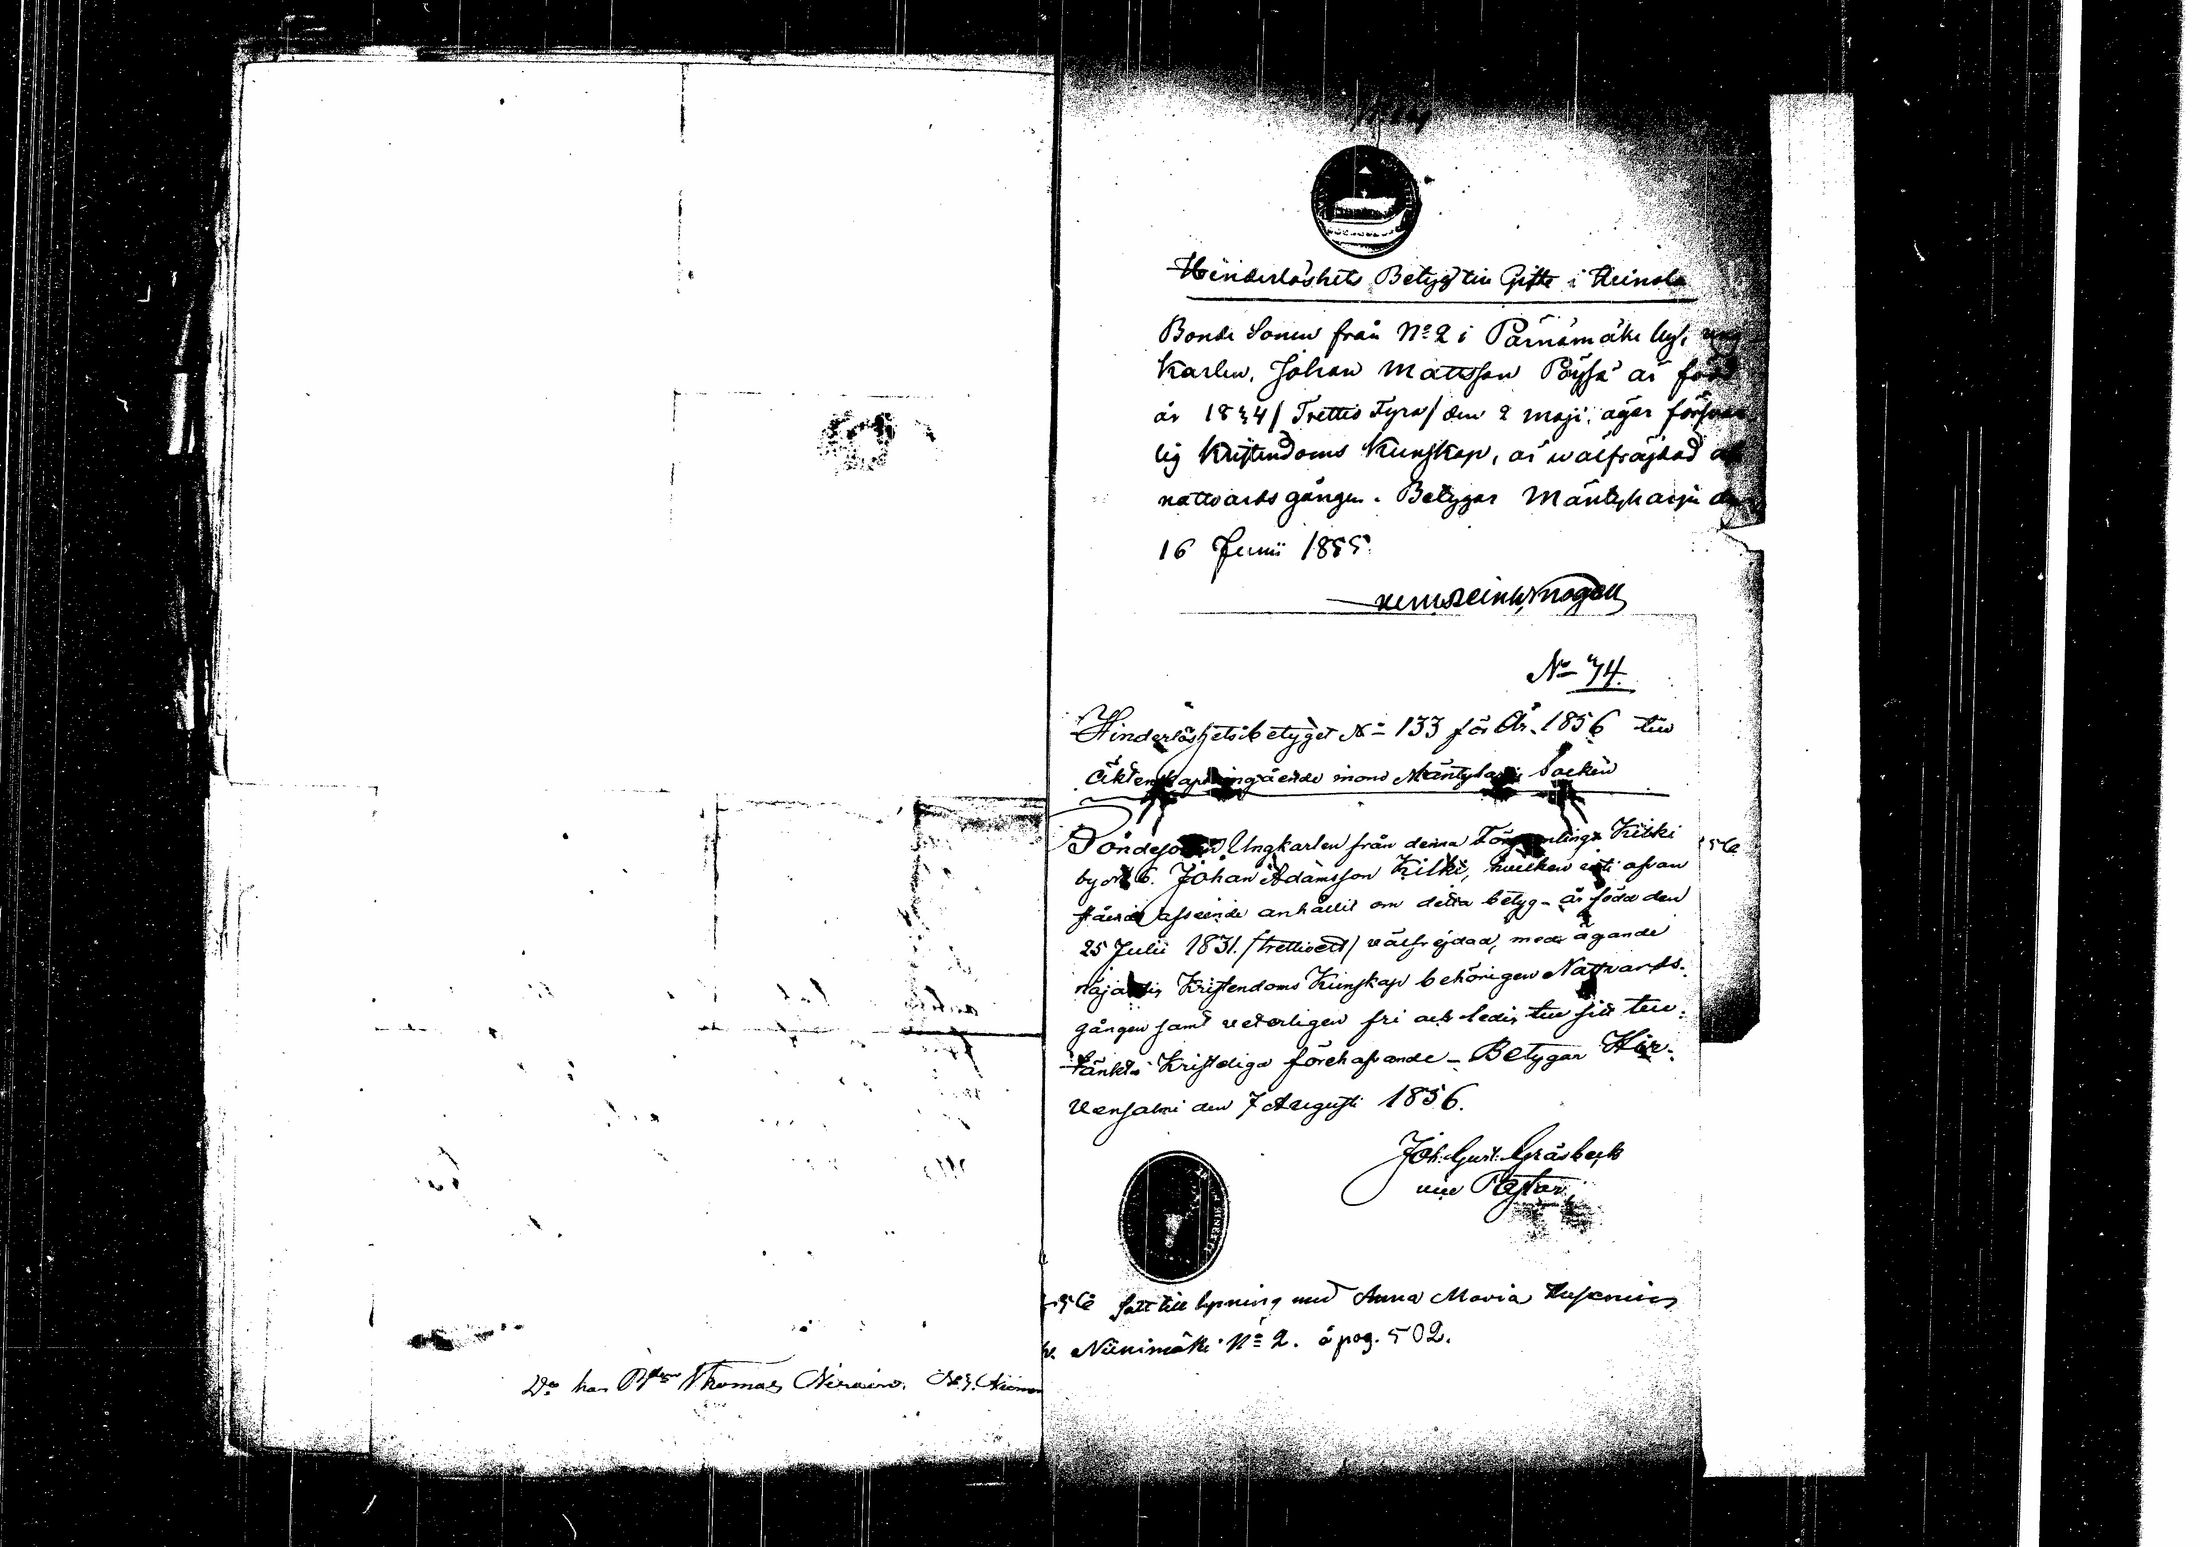 Hinderlöshets Betyg till Gifte i Heinola
Bonde Sonen från No 2 i Pärnämäki by, ung
Karlen, Johan Mattsson Pöysä är född
år 1834 / Trettio Fyra / den 2 Maji, äger försvar
lig Kristendoms Kunskap, är wälfräjdad och
nattvards gången. Betygar Mäntyharju den
16 Junii 1855.
No 74.
Hinderlöshetsbetyget No 133 för År 1856 till
Äktenskaps ingående inom Mäntyharju Socken
Bondesonen Ungkarlen från denna Kilkki
by No 6. Johan Adamsson Kilkki, hvilken
afseende anhållit om detta betyg - är född den
25 Julii 1831. / trettioett / välfrejdad, med ägande
nöjaktig Kristendoms Kunskap behörigen Nattvards-
gången samt veterligen fri och ledig till sitt till-
tänkta Kristeliga förehafvande - Betygar Hir-
vensalmi den 7 Augusti 1856.
Joh. Gust. Gråsbeck
vice Pastor
1856 satt till lysning med Anna Maria
Niinimäki No 2. å pag. 502.
Do har Thomas